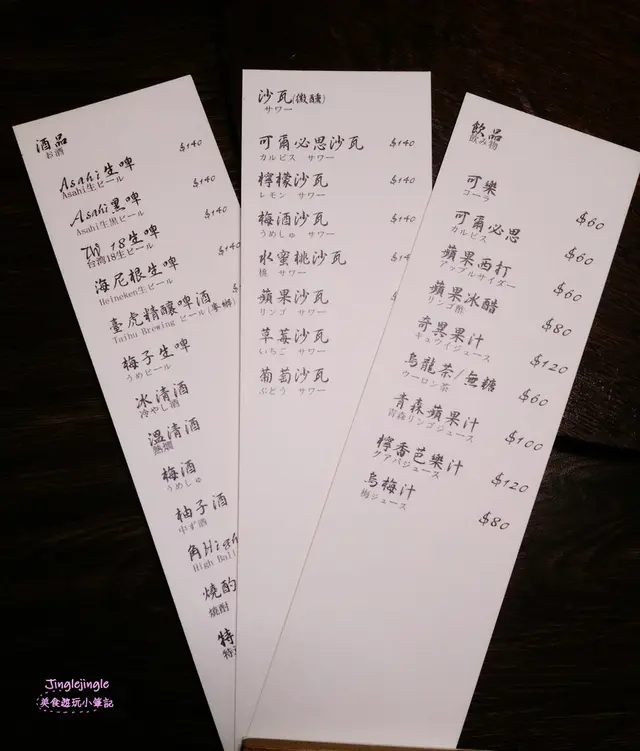 酒品
お酒
Asahi生啤 $140
Asahi生ビール
Asahi黑啤 $140
Asahi生黒ビール
TW 18生啤 $140
台湾18生ビール
海尼根生啤 $140
Heineken生ビール
臺虎精釀啤酒
Taihu Brewing ビール
梅子生啤
うめビール
冰清酒
冷やし酒
溫清酒
熱燗
梅酒
うめしゅ
柚子酒
ゆず酒
角High
High Ball
燒酌
焼酎
特
特
沙瓦(微醺)
サワー
可爾必思沙瓦 $140
カルピス サワー
檸檬沙瓦 $140
レモン サワー
梅酒沙瓦 $140
うめしゅ サワー
水蜜桃沙瓦
桃 サワー
蘋果沙瓦
リンゴ サワー
草莓沙瓦
いちご サワー
葡萄沙瓦
ぶどう サワー
飲品
飲み物
可樂 $60
コーラ
可爾必思 $60
カルピス
蘋果西打 $60
アップルサイダー
蘋果冰醋 $80
リンゴ酢
奇異果汁 $120
キュウイジュース
烏龍茶/無糖 $60
ウーロン茶
青森蘋果汁 $100
青森リンゴジュース
檸香芭樂汁 $120
グアバジュース
烏梅汁 $80
梅ジュース
Jinglejingle
美食遊玩小筆記